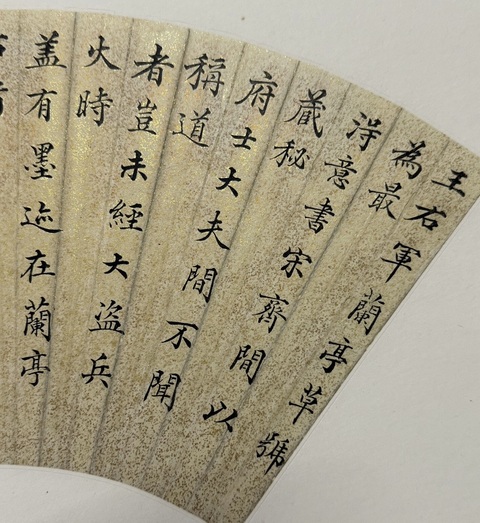 王右軍蘭亭草號
為最
淂意書宋齊間以
蔵秘
府士大夫間不聞
稱道
者豈未經大盜兵
火時
盖有墨迹在蘭亭